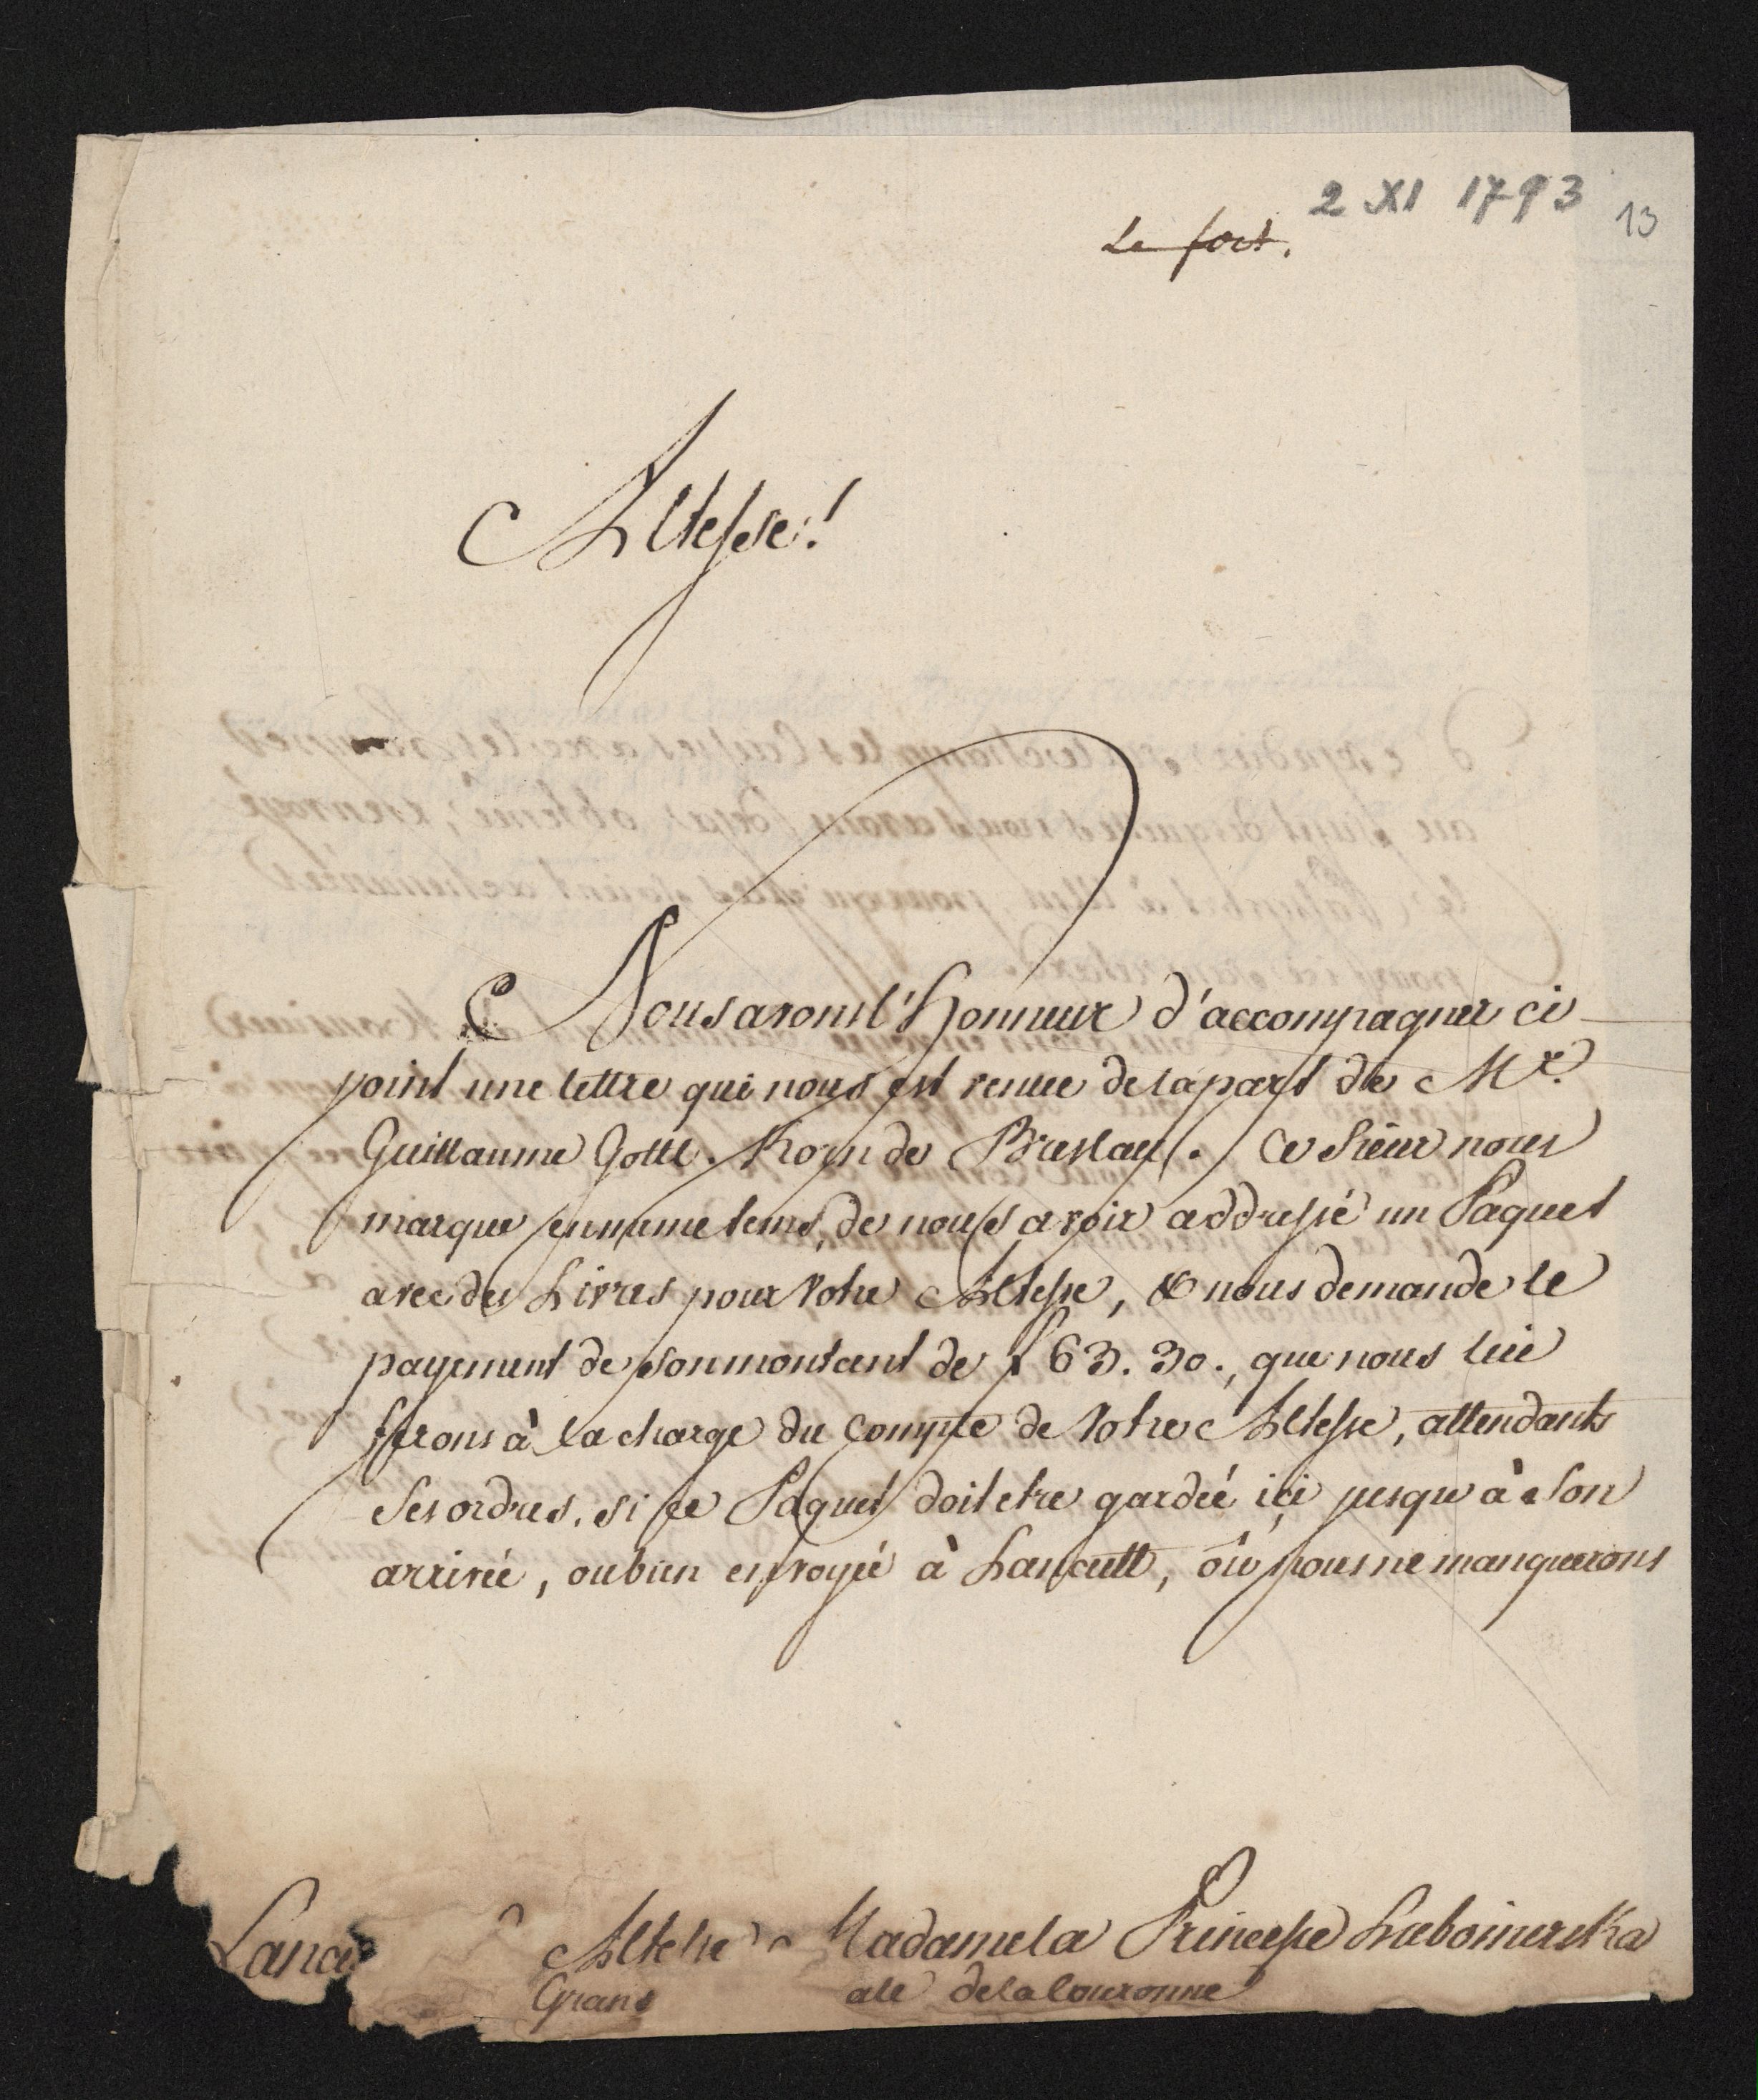 2 XI 1793
13
Le fort.
Altesse!
Nous avons l'Honneur d'accompagner ci
point une lettre qui nous est venue de la part de Mr.
Guillaume Gottl. Korn de Breslau. Ce Sieur nous
marque en meme tems, de nous avoir addressé un Paquet
avec des Livres pour Votre Altesse, & nous demande le
payement de son montant de f 63. 30., que nous lui
ferons à la charge du Compte de Votre Altesse, attendants
Ses ordres, si ce Paquet doit etre gardéé ici jusqu'à Son
arrivée, ou bien envoyéé à Lancutt, où nous ne manquerons
Lancu Altesse Madame la Princesse Lubomirska
Grand ale de la Couronne